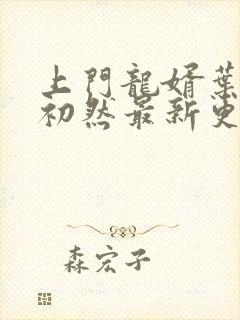 上門龍婿葉
初然最新更
森宏子